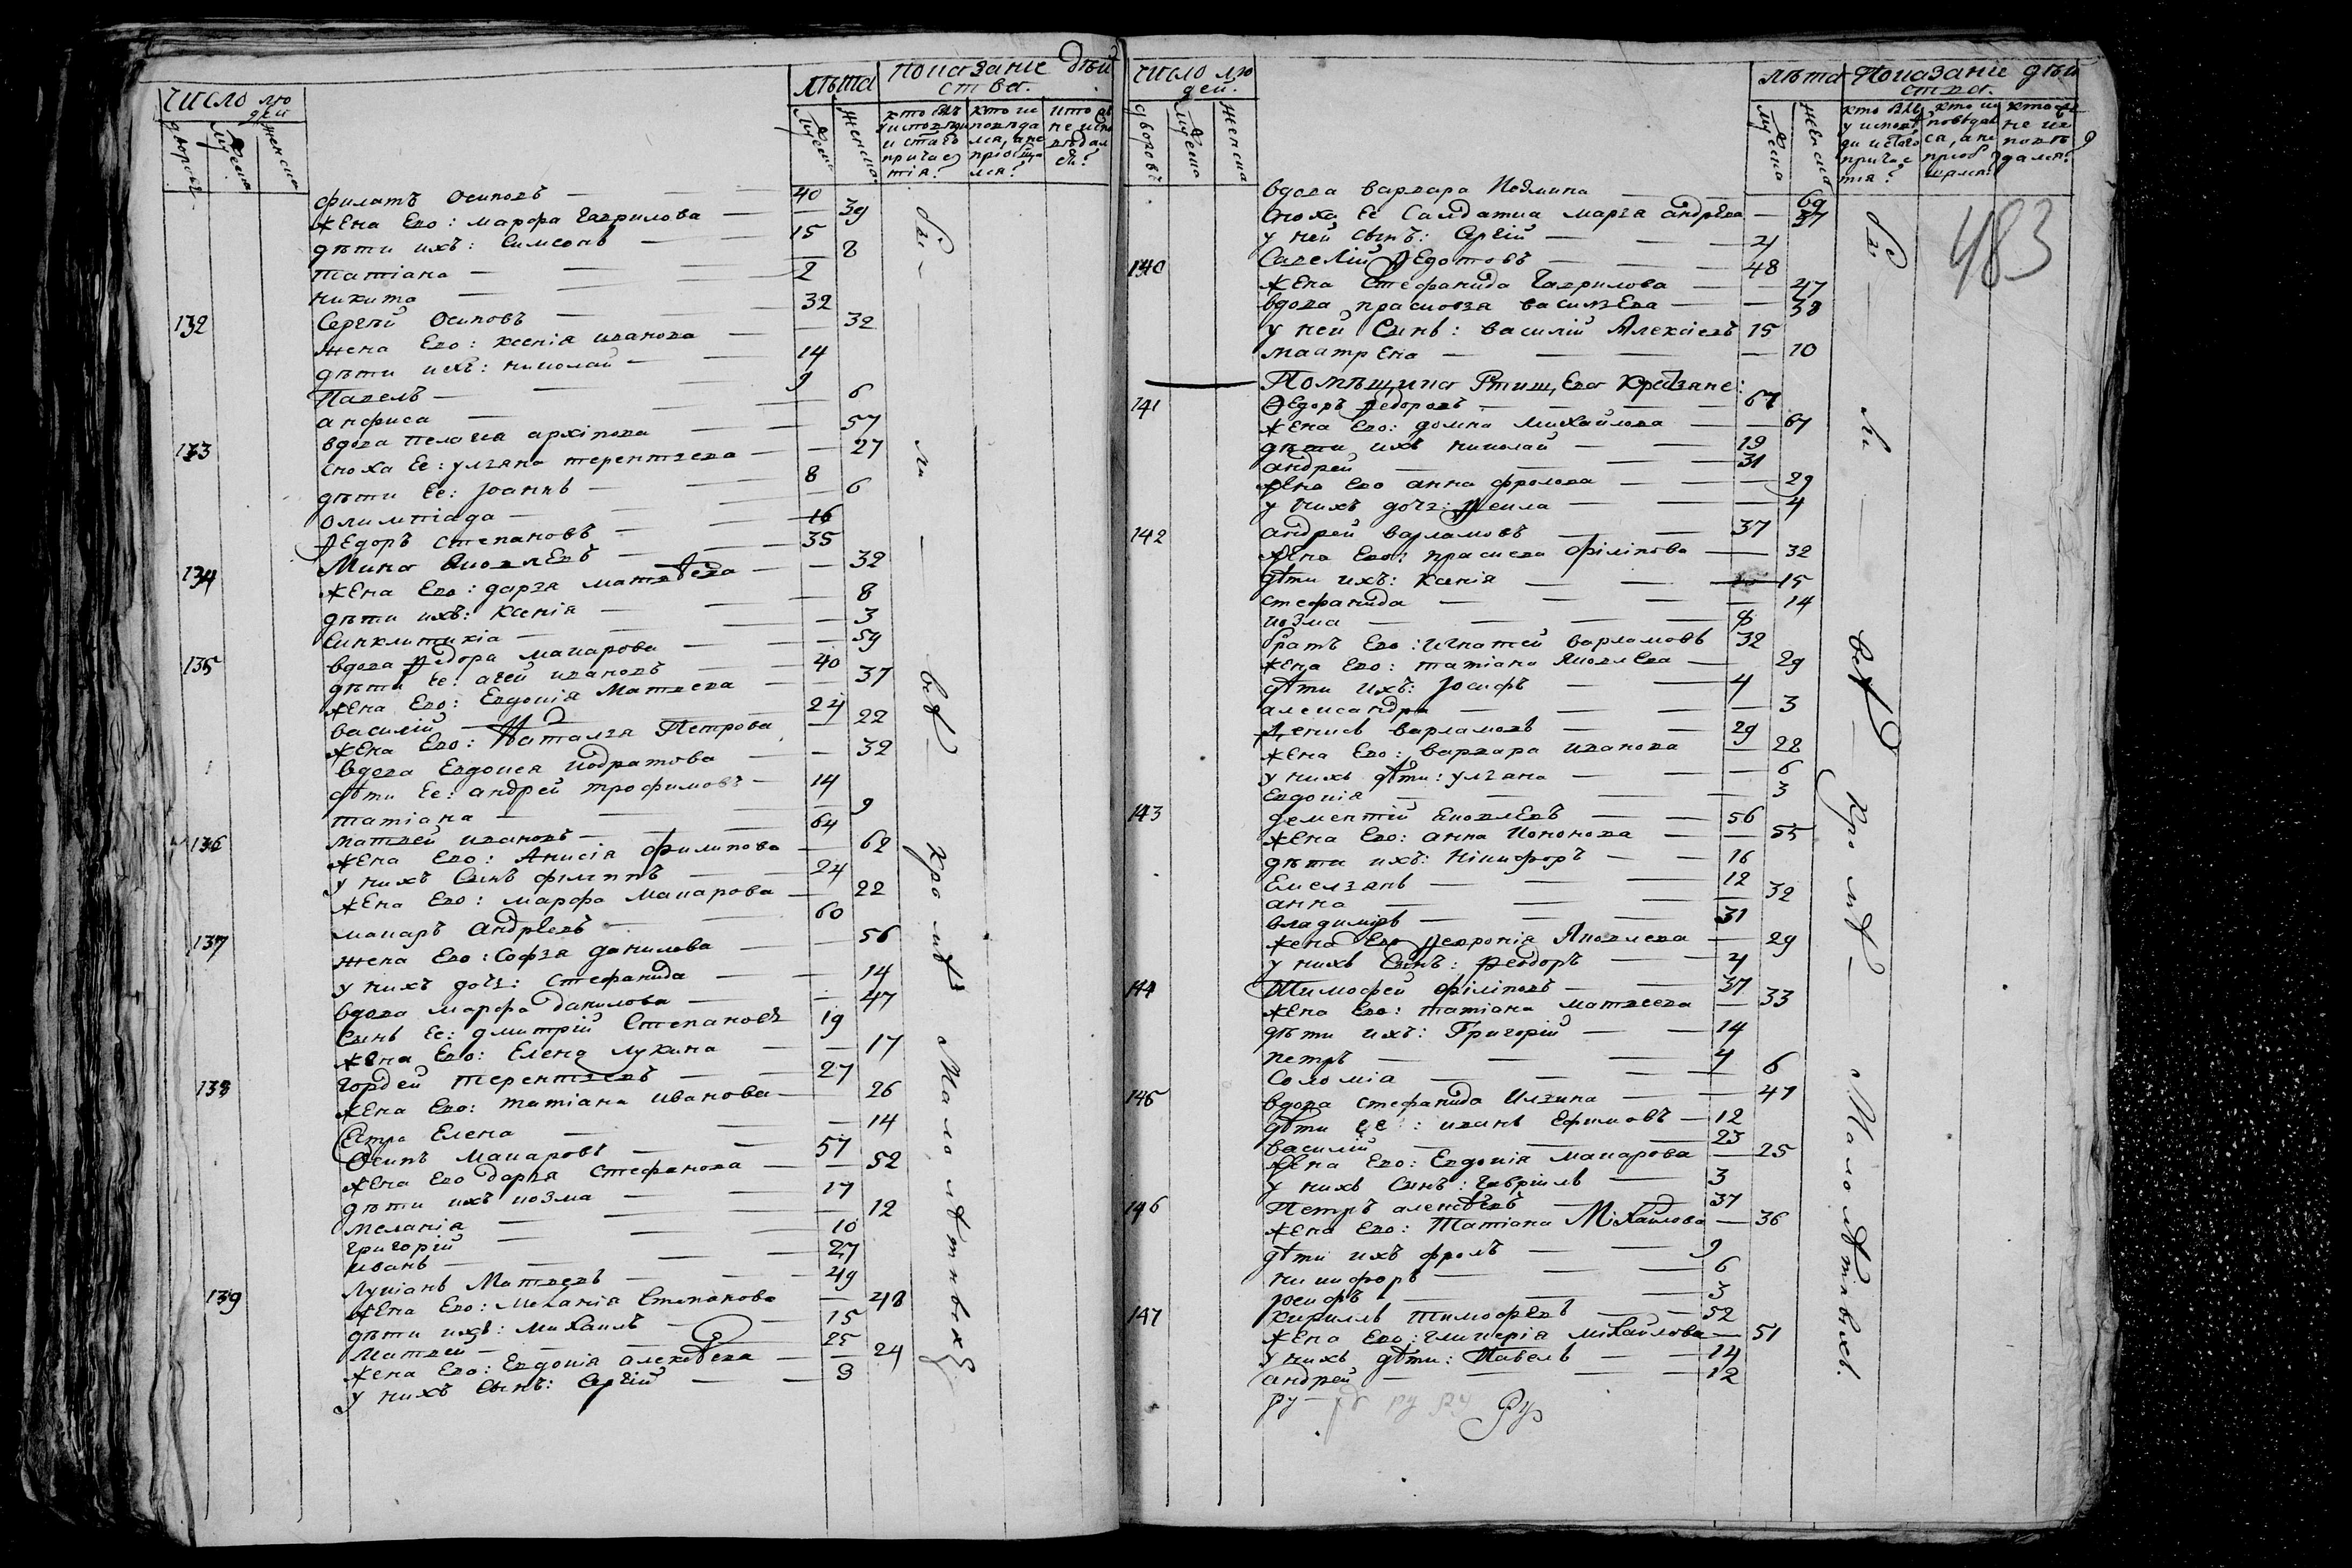 число лю
дей
дворовъ
Мужеска
женска
лѣта
Мужеска
Женска
Показание дѣй
ства.
кто былъ
у исповѣди
и святаго
причас
тія?
кто ис
повѣда
лся, а не
пріобща
лся?
кто
не испо
вѣдал
ся?
филатъ Осиповъ — 40
жена Его: марфа Гаврилова — 39
дѣти ихъ: Симеонъ — 15
татіана — 8
никита — 2
132 Сергѣй Осиповъ — 32
жена Его: ксенія иванова — 32
дѣти ихъ: николай — 14
Павелъ — 9
анфиса — 6
133 вдова пелагея архіпова — 57
сноха Ее: ульяна терентьева — 27
дѣти Ее: Іоаннъ — 8
олимпіада — 6
Ѳедоръ степановъ — 16
134 Мина Яковлевъ — 35
жена Его: дарья матвѣева — 32
дѣти ихъ: ксенія — 8
Синклитикіа — 3
135 вдова Ѳедора макарова — 59
дѣти Ее: агей ивановъ — 40
жена Его: Евдокія Матвеева — 37
василій — 24
жена Его: Наталья Петрова — 22
вдова Евдокея кодратова — 32
дѣти Ее: андрей трофимовъ — 14
татіана — 9
136 матвей ивановъ — 64
жена Его: Анисія филипова — 62
у нихъ Сынъ филиппъ — 24
жена Его: марфа Макарова — 22
137 макаръ андреевъ — 60
жена Его: Софья данилова — 56
у нихъ дочь: Стефанида — 14
вдова марфа данилова — 47
Сынъ Ее: дмитрій Степановъ 19
жена Его: Елена лукина — 17
138 гордей терентьевъ — 27
жена Его: татіана иванова — 26
Сестра Елена — 14
Осипъ Макаровъ — 57
жена Его дарья Стефанова — 52
дѣти ихъ козма — 17
меланія — 12
григорій — 10
иванъ — 27
139 Лукіанъ Матвеевъ — 49
жена Его: Меланія Степанова — 48
дѣти ихъ: михаилъ — 15
Матвей — 25
жена Его: Евдокія алексѣева — 24
у нихъ Сынъ: Сергій — 3
бы — ли — всѣ — кромѣ Малолѣтныхъ
число лю
дей.
дворовъ
Мужеска
женска
лѣта
Мужеска
женска
Показание дѣй
ства.
кто былъ
у исповѣ
ди и святаго
причас
тія?
кто ис
повѣдал
ся, а не
пріоб
щался?
кто
не ис
повѣ
дался?
483
вдова варвара — 69
Сноха Ее Салдатка марья андреева — 37
у ней сынъ: Сергій — 4
140 Савелій Ѳедотовъ — 48
жена Стефанида Гаврилова — 47
вдова прасковья васильева — 38
у ней Сынъ: василій Алексіевъ 15
маатрена — 10
Помѣщика Ртищева крестьяне:
141 Ѳедоръ Ѳедоровъ — 67
жена Его: домна Михайлова — 67
дѣти ихъ николай — 19
андрей — 31
жена Его анна фролова — 29
у нихъ дочь: Ѳекла — 4
142 андрей варламовъ — 37
жена Его: праскева філіпова — 32
дѣти ихъ: ксенія — 15
стефанида — 14
козма — 8
братъ Его: игнатей варламовъ 32
жена Его: татіана Яковлева — 29
дѣти ихъ: Іосифъ — 4
александра — 3
Денисъ варламовъ — 29
жена Его: варвара иванова — 22
у нихъ дѣти: ульяна — 6
Евдокія — 3
143 дементій Яковлевъ — 56
жена Его: анна Кононова — 55
дѣти ихъ: Нікифоръ — 16
Емельянъ — 12
анна — 32
владиміръ — 31
жена Его Ѳевронія Яковлева — 29
у нихъ Сынъ: Ѳеодоръ — 4
144 Тимофей філіповъ — 37
жена Его: татіана матвеева — 33
дѣти ихъ: Григорій — 14
петръ — 4
Соломіа — 6
145 вдова стефанида Ильина — 47
дѣти Ее: иванъ Ефимовъ — 12
василій — 23
жена Его: Евдокія макарова — 25
у нихъ Сынъ: гавріилъ — 3
146 Петръ алексѣевъ — 37
жена Его: Татіана Міхайлова — 36
дѣти ихъ фролъ — 9
никифоръ — 6
Іосифъ — 3
147 кириллъ тимофеевъ — 52
жена Его: гликерія міхайлова — 51
у нихъ дѣти: Павелъ — 14
андрей — 12
ру — ру ру Ру
бы — ли — всѣ — кромѣ — Малолѣтныхъ.